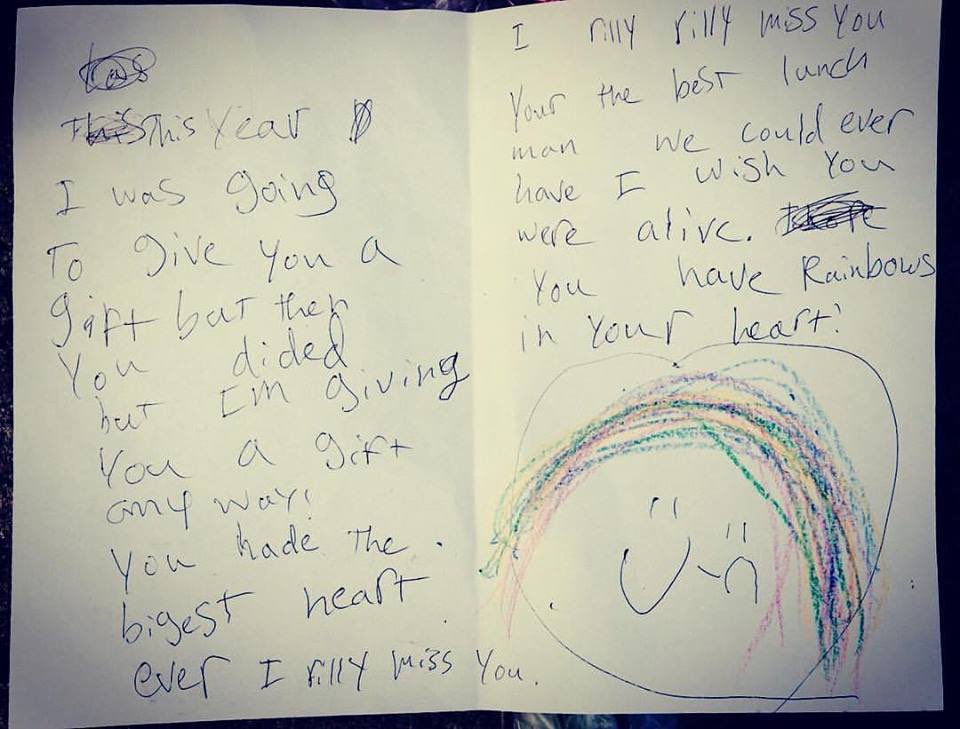 This Year
I was going
To give You a
gift but then
You dided
but I'm giving
You a gift
any way!
You hade The
bigest heart
ever I rilly miss You.
I rilly rilly miss You
Your the best lunch
man we could ever
have I wish You
were alive.
You have Rainbows
in Your heart!